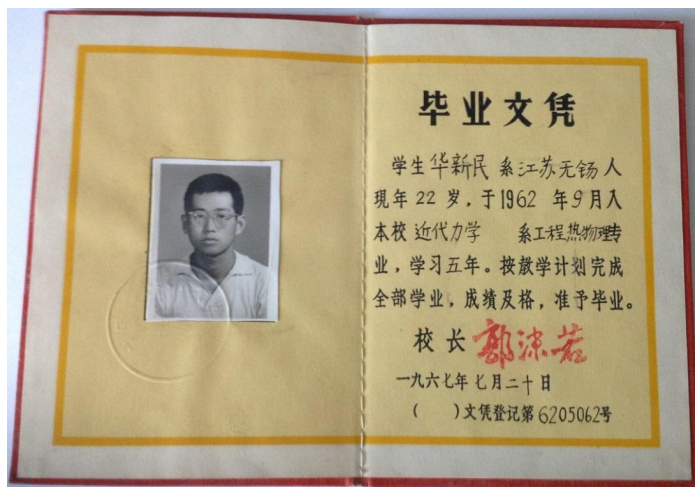 毕业文凭
学生华新民 系江苏无钖人
现年22岁，于1962 年9月入
本校近代力学 系工程热物理专
业，学习五年。按教学计划完成
全部学业，成绩及格，准予毕业。
校长 郭沫若
一九六七年七月二十日
( )文凭登记第6205062号